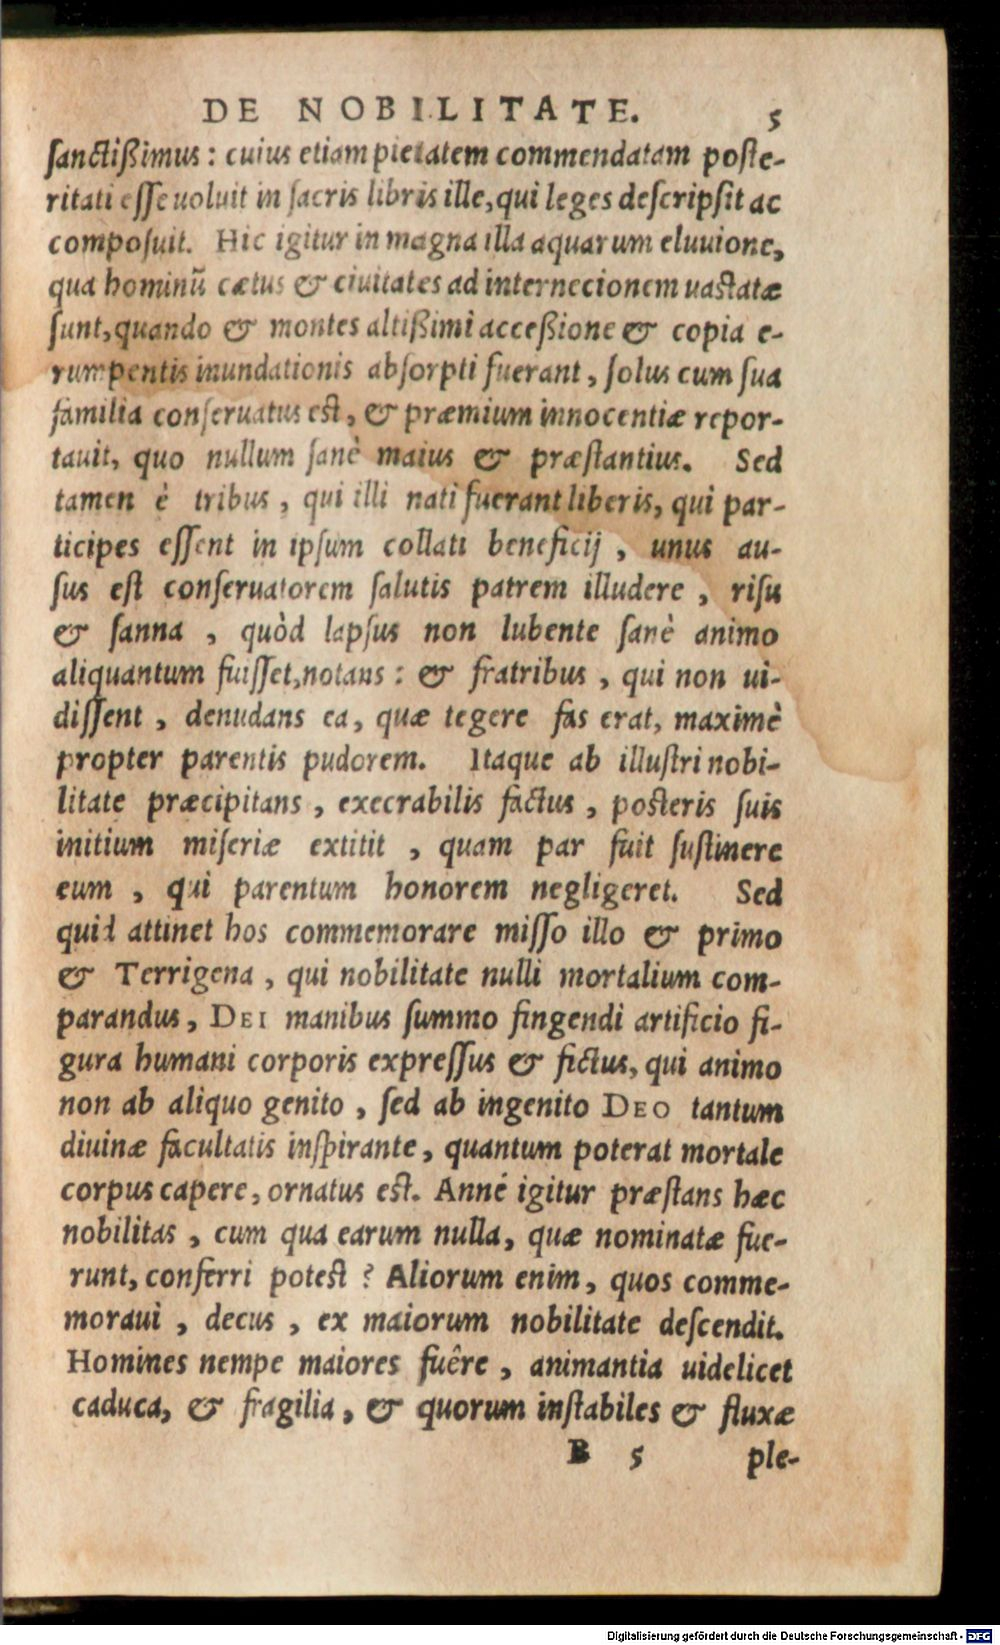 DE NOBILITATE. 5
sanctißimus: cuius etiam pietatem commendatam poste-
ritati esse uoluit in sacris libris ille, qui leges descripsit ac
composuit. Hic igitur in magna illa aquarum eluuione,
qua hominũ cætus & ciuitates ad internecionem uastatæ
sunt, quando & montes altißimi acceßione & copia e-
rumpentis inundationis absorpti fuerant, solus cum sua
familia conseruatus est, & præmium innocentiæ repor-
tauit, quo nullum sanè maius & præstantius. Sed
tamen è tribus, qui illi nati fuerant liberis, qui par-
ticipes essent in ipsum collati beneficij, unus au-
sus est conseruatorem salutis patrem illudere, risu
& sanna, quòd lapsus non lubente sanè animo
aliquantum fuisset, notans: & fratribus, qui non ui-
dissent, denudans ea, quæ tegere fas erat, maximè
propter parentis pudorem. Itaque ab illustri nobi-
litate præcipitans, execrabilis factus, posteris suis
initium miseriæ extitit, quam par fuit sustinere
eum, qui parentum honorem negligeret. Sed
quid attinet hos commemorare misso illo & primo
& Terrigena, qui nobilitate nulli mortalium com-
parandus, DEI manibus summo fingendi artificio fi-
gura humani corporis expressus & fictus, qui animo
non ab aliquo genito, sed ab ingenito DEO tantum
diuinæ facultatis inspirante, quantum poterat mortale
corpus capere, ornatus est. Anné igitur præstans hæc
nobilitas, cum qua earum nulla, quæ nominatæ fue-
runt, conferri potest? Aliorum enim, quos comme-
moraui, decus, ex maiorum nobilitate descendit.
Homines nempe maiores fuêre, animantia uidelicet
caduca, & fragilia, & quorum instabiles & fluxæ
B 5 ple-
Digitalisierung gefördert durch die Deutsche Forschungsgemeinschaft - DFG